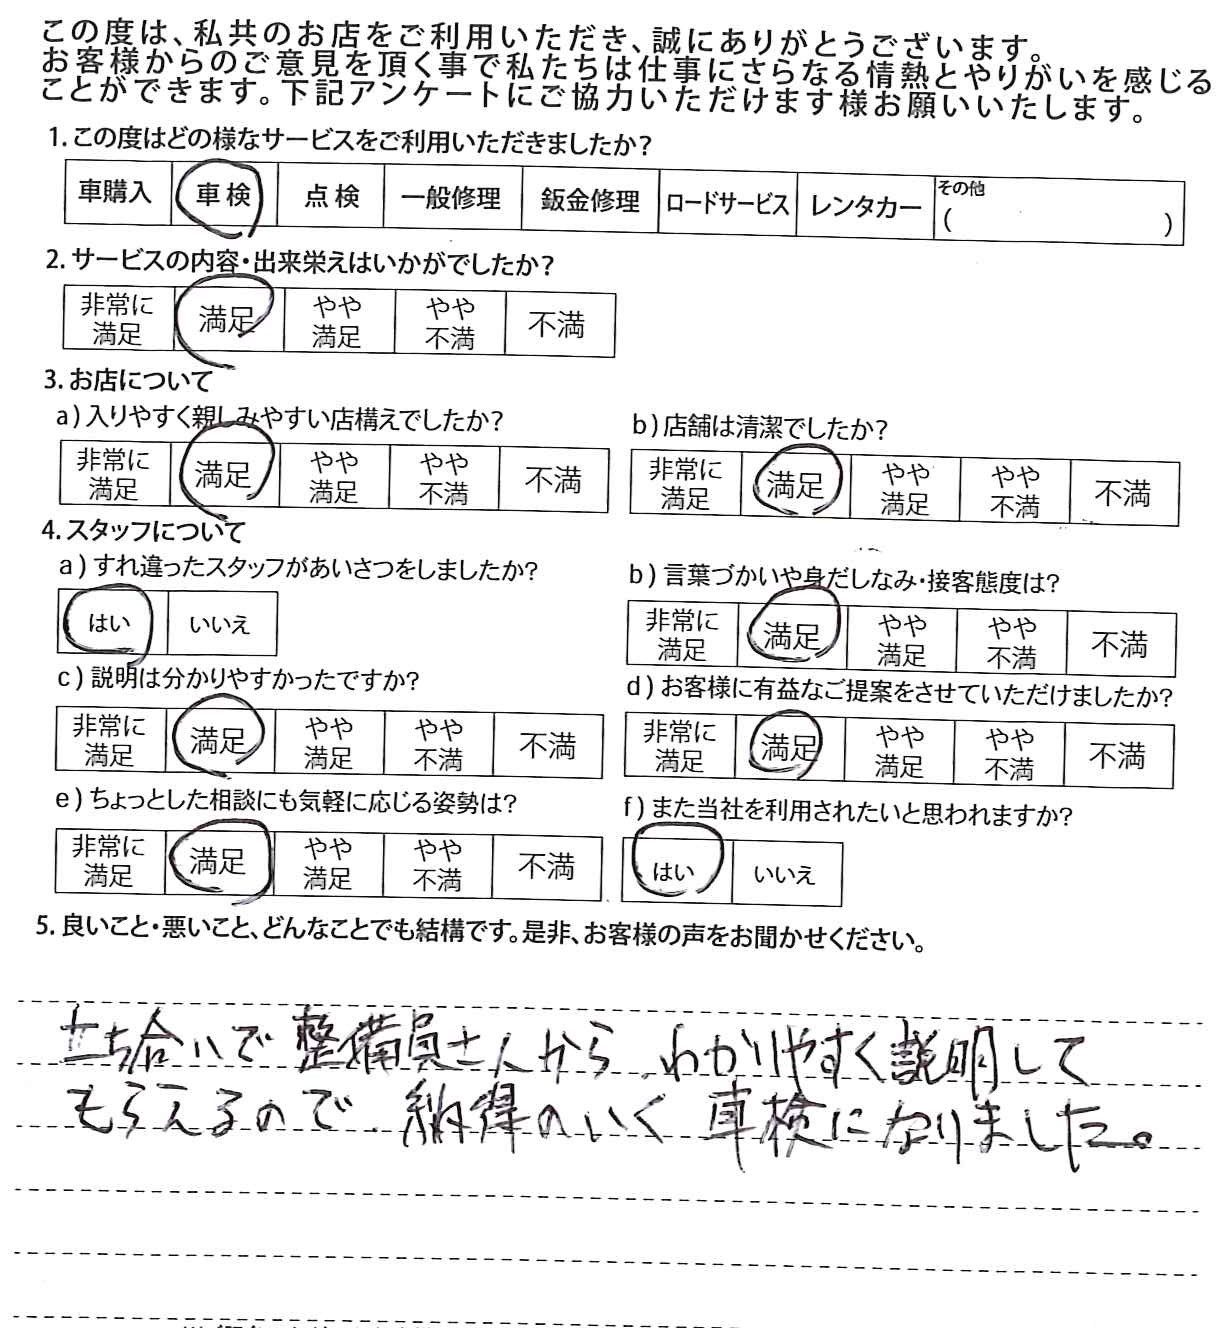 この度は、私共のお店をご利用いただき、誠にありがとうございます。
お客様からのご意見を頂く事で私たちは仕事にさらなる情熱とやりがいを感じる
ことができます。下記アンケートにご協力いただけます様お願いいたします。
1. この度はどの様なサービスをご利用いただきましたか?
車購入 車検 点検 一般修理 鈑金修理 ロードサービス レンタカー その他 ( )
2. サービスの内容・出来栄えはいかがでしたか?
非常に満足 満足 やや満足 やや不満 不満
3. お店について
a) 入りやすく親しみやすい店構えでしたか?
非常に満足 満足 やや満足 やや不満 不満
b) 店舗は清潔でしたか?
非常に満足 満足 やや満足 やや不満 不満
4. スタッフについて
a) すれ違ったスタッフがあいさつをしましたか?
はい いいえ
b) 言葉づかいや身だしなみ・接客態度は?
非常に満足 満足 やや満足 やや不満 不満
c) 説明は分かりやすかったですか?
非常に満足 満足 やや満足 やや不満 不満
d) お客様に有益なご提案をさせていただけましたか?
非常に満足 満足 やや満足 やや不満 不満
e) ちょっとした相談にも気軽に応じる姿勢は?
非常に満足 満足 やや満足 やや不満 不満
f) また当社を利用されたいと思われますか?
はい いいえ
5. 良いこと・悪いこと、どんなことでも結構です。是非、お客様の声をお聞かせください。
立ち合いで整備員さんから、わかりやすく説明して
もらえるので、納得のいく車検になりました。